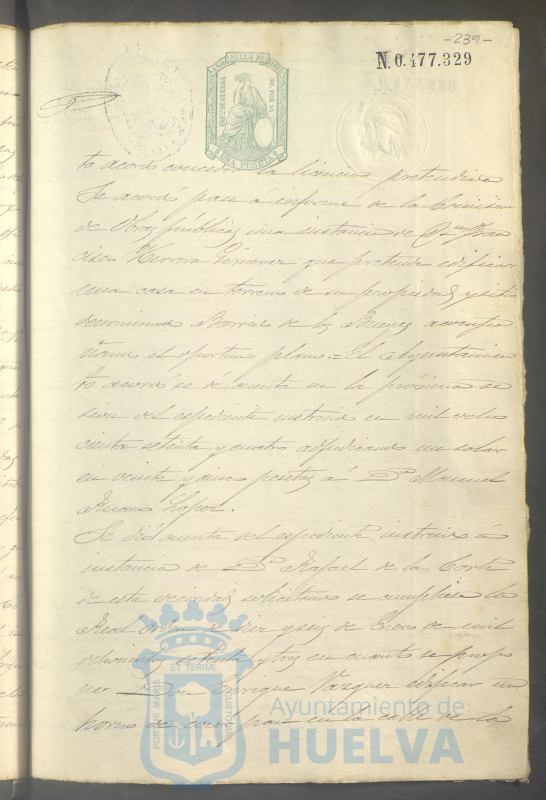 -239-
N. 0.477.329
AÑO SELLO DE
UNA PESETA
to acordó conceder la licencia pretendida
Se acordó pase á informe de la Comision
de Obras públicas una instancia de Fran
cisco Herrera Gimenez que pretende edificar
una casa en terreno de su propiedad y sitio
denominado Barrio de los Bueyes acompa
ñando el oportuno plano.= El Ayuntamien
to acordó se dé cuenta en la próxima se
sion del espediente instruido en mil ocho
cientos setenta y cuatro adjudicando un solar
en veinte y cinco pesetas á Dn Manuel
Lopez.
Se dió cuenta del espediente instruido á
instancia de Dn Rafael de la Corte
de esta vecindad, solicitando se cumpliese la
Real orden de diez y seis de Enero de mil
ochocientos setenta y tres en cuanto se
Enrique Vazquez edificar un
horno de cocer pan en la calle de la
PORTUS MARIS ET TERRÆ CUSTODIA
Ayuntamiento de
HUELVA